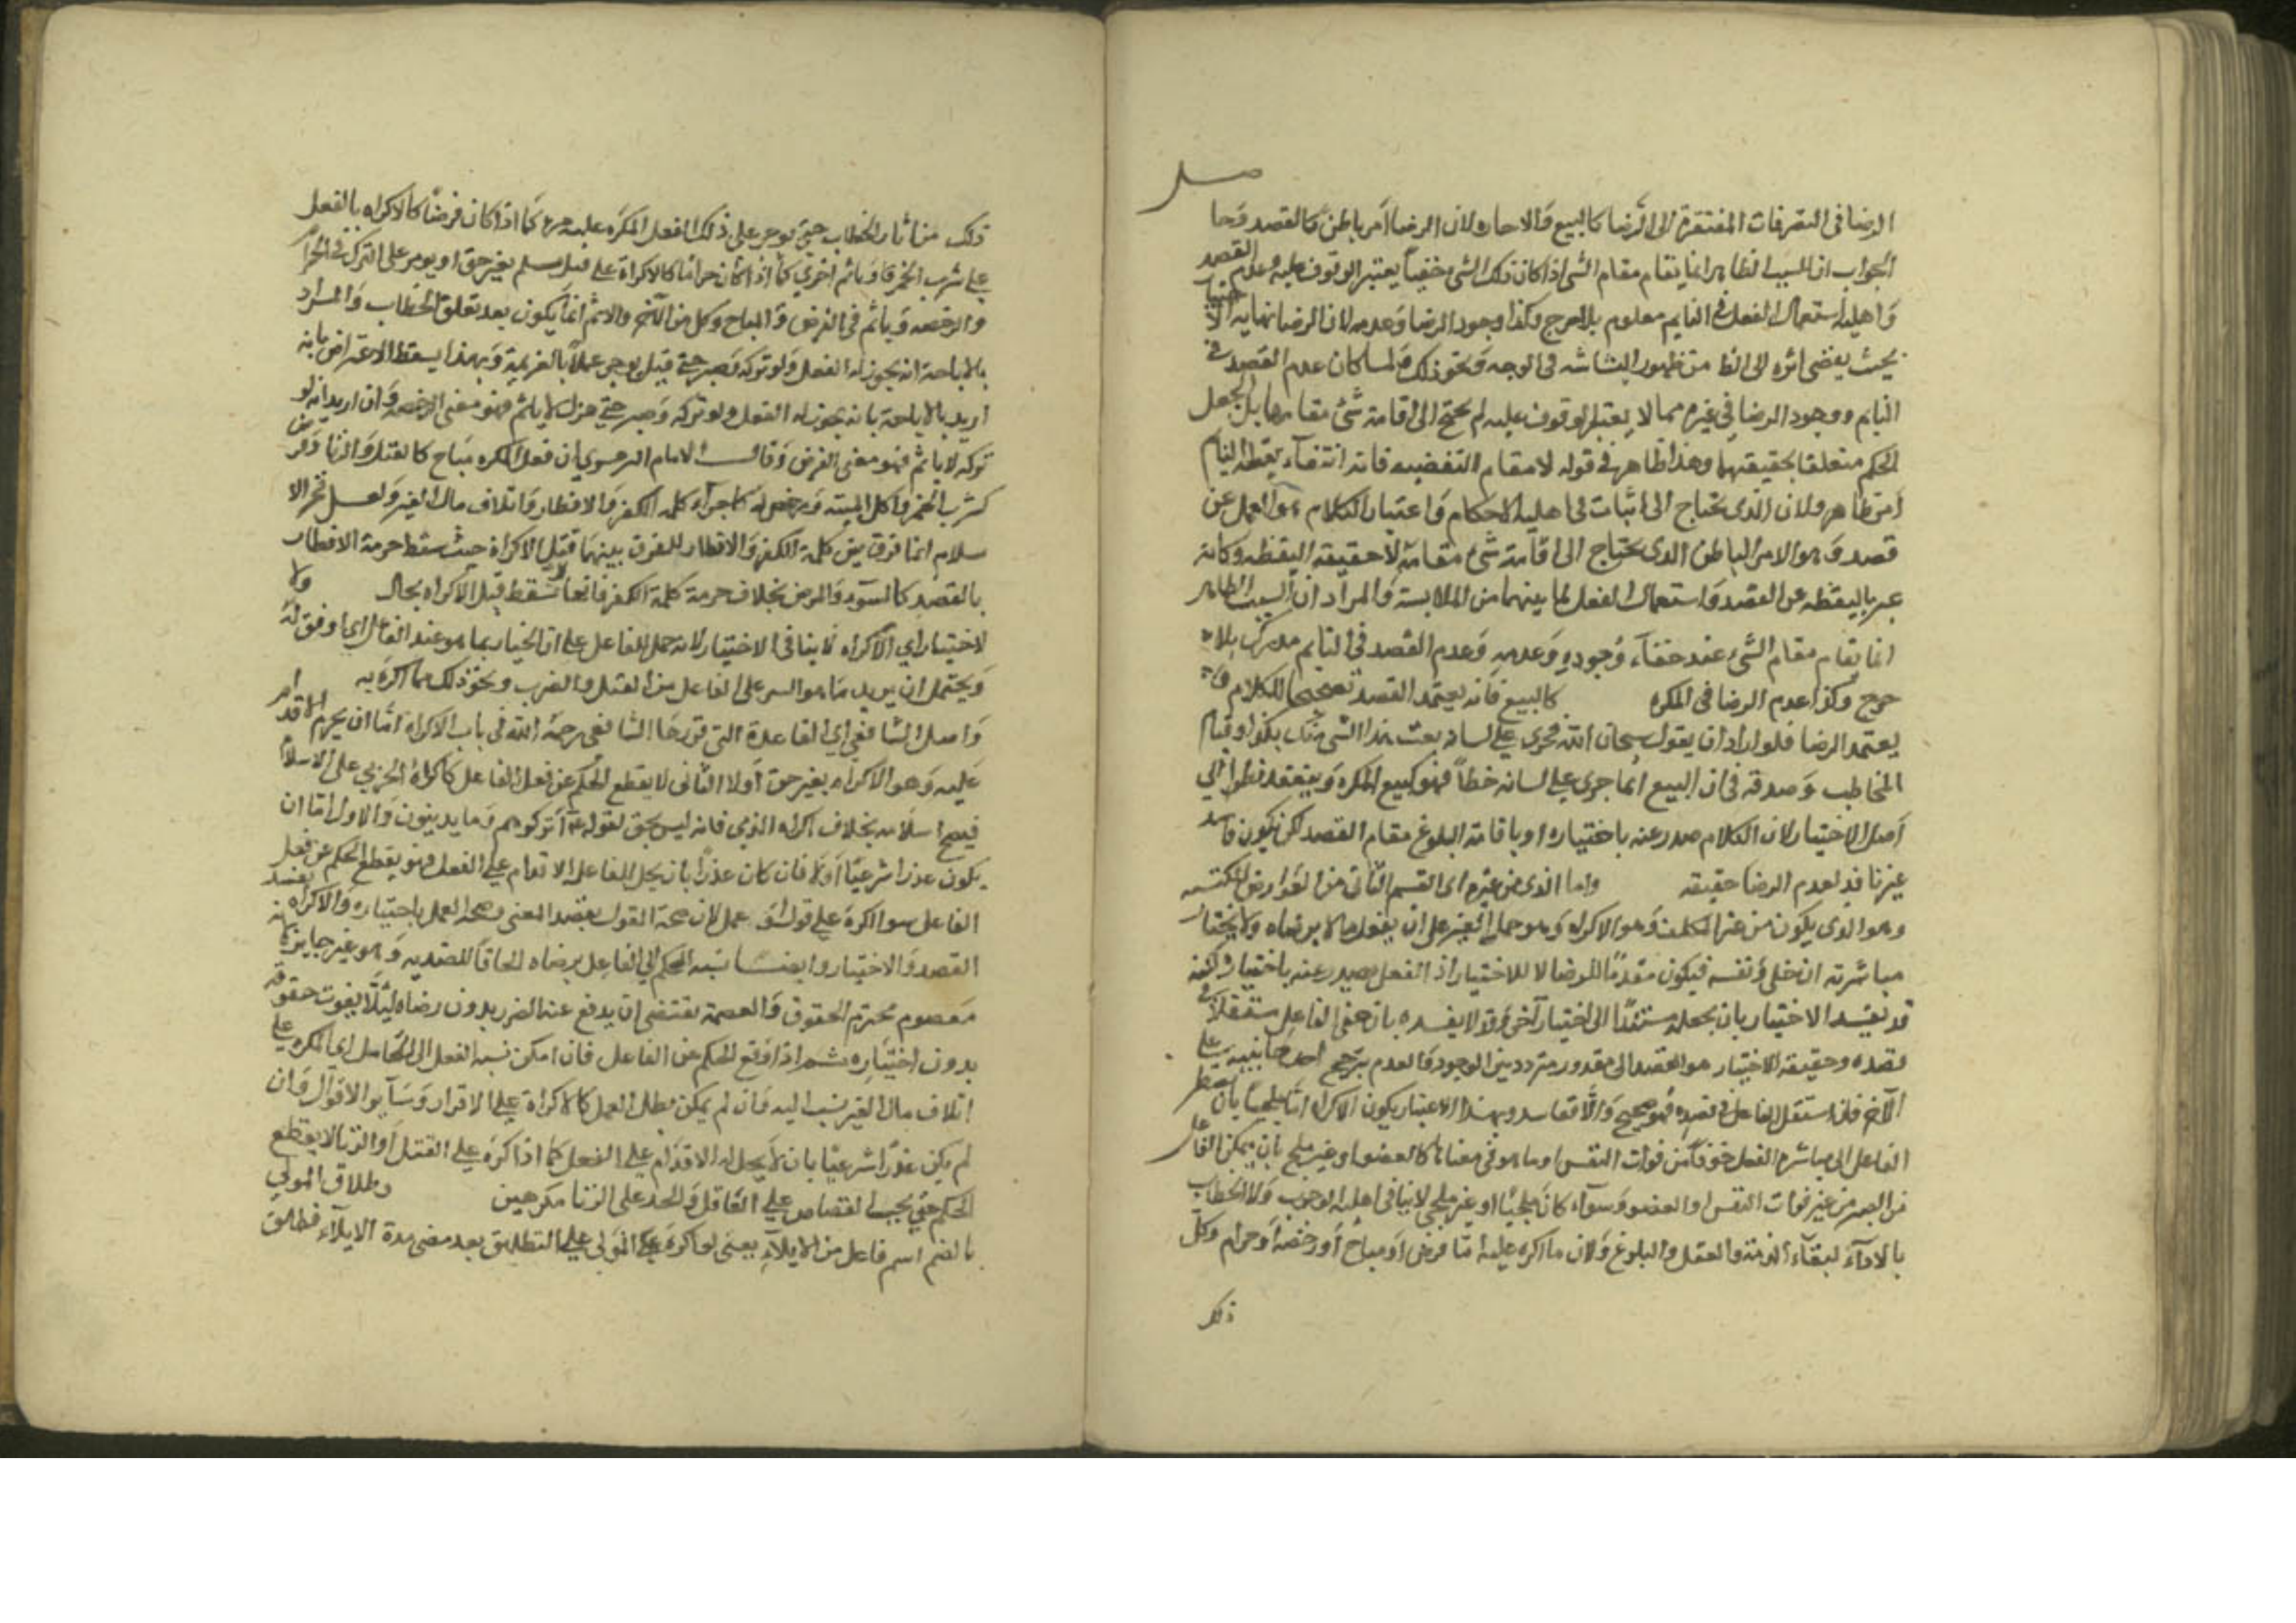 الرضا فى التصرفات المفتقرة الى الرضا كالبيع والاجاره لان الرضا امر باطن كالقصد وحا
الجواب ان السبب الظاهر انما يقام مقام الشى اذا كان ذلك الشى خفيا يعتبر الوقوف عليه وعدم القصد
واهليه استعمال الفعل فى النايم معلوم بلا حرج وكذا وجود الرضا وعدمه لان الرضا نهايه
بحيث يفضى اثره الى الظ من ظهور البشاشه فى الوجه ونحو ذلك ولما كان عدم القصد فى
النايم ووجود الرضا فى غيره مما لا يعتبر الوقوف عليه لم يحتج الى اقامة شئ مقامها بل جعل
الحكم متعلقا بحقيقتهما وهذا ظاهر فى قوله لا مقام التفضيه فانه انتفاء يقظه النايم
امر ظاهر ولان الذى يحتاج الى اثبات فى اهليه الاحكام واعتبار الكلام هو العمل عن
قصد وهو الامر الباطن الذى يحتاج الى اقامة شئ مقامه لا حقيقه اليقظه وكانه
عبر باليقظه عن القصد واستعمال الفعل لما بينهما من الملابسة والمراد ان السبب الظاهر
انما يقام مقام الشئ عند خفاء وجوده وعدمه وعدم القصد فى النايم مدرك بلا
حرج وكذا عدم الرضا فى المكره كالبيع فانه يعتمد القصد تصحيحا للكلام
يعتمد الرضا فلو اراد ان يقول سبحان الله فجرى على لسانه بعت هذا الشى منك بكذا وقبله
المخاطب وصدقه فى ان البيع انما جرى على لسانه خطأ فهو كبيع المكره وينعقد نظرا الى
اصل الاختيار لان الكلام صدر عنه باختياره او باقامة البلوغ مقام القصد لكن يكون فاسدا
غير نافذ لعدم الرضا حقيقه واما الذى من غيره اى القسم الثانى من العوارض المكتسبه
وهو الذى يكون من غير المكلف وهو الاكراه وهو حمل الغير على ان يفعل ما لا يرضاه ولا يختار
مباشرته ان خلى ونفسه فيكون معدما للرضا لا للاختيار اذ الفعل يصدر عنه باختياره لكنه
قد يفسد الاختيار بان يجعله مستندا الى اختيار آخر وقد لا يفسده بان يبقى الفاعل مستقلا فى
قصده وحقيقه الاختيار هو القصد الى مقدور متردد بين الوجود والعدم بترجيح احد جانبيه على
الآخر فان استقل الفاعل فى قصده فهو صحيح والا ففاسد وبهذا الاعتبار يكون الاكراه اما ملجئا بان يضطر
الفاعل الى مباشرة الفعل خوفا من فوات النفس او ما هو فى معناها كالعضو او غير ملجئ بان يمكن الفاعل
من الصبر من غير فوات النفس او العضو وسواء كان ملجئا او غير ملجئ لا ينافى اهليه الوجوب ولا الخطاب
بالاداء لبقاء الذمة والعقل والبلوغ ولان ما اكره عليه اما فرض او مباح او رخصة او حرام وكل
ذلك
ذلك من آثار الخطاب حتى يوجر على ذلك الفعل المكره عليه مرة كما اذا كان فرضا كالاكراه بالقتل
على شرب الخمر وياثم اخرى كما اذا كان حراما كالاكراه على قتل مسلم بغير حق او يوجر على الترك فى الحرام
والرخصه وياثم فى الفرض والمباح وكل من الاجر والاثم انما يكون بعد تعلق الخطاب والمراد
بالاباحة انه يجوز له الفعل ولو تركه وصبر حتى قتل يوجر عملا بالعزيمة وبهذا يسقط الاعتراض بانه
اريد بالاباحة بانه يجوز له الفعل ولو تركه وصبر حتى قتل لا ياثم فهو معنى الرخصه وان اريد انه لو
تركه لا ياثم فهو معنى الفرض وقال الامام البرغرى ان فعل المكره مباح كالقتل والزنا وفرض
كشرب الخمر واكل الميته ومرخص له كاجراء كلمة الكفر والافطار واتلاف مال الغير ولعل فخر الا
سلام انما فرق بين كلمة الكفر والافطار للفرق بينهما قبل الاكراه حيث سقط حرمة الافطار
بالقصد كالسفر والمرض بخلاف حرمة كلمة الكفر فانها لا تسقط قبل الاكراه بحال ولا
لاختياره اى الاكراه لا ينافى الاختيار لانه حمل للفاعل على ان يختار ما هو عند الفاعل اى اوفق له
ويحتمل ان يريد ما هو ايسر على الفاعل من القتل والضرب ونحو ذلك مما اكره به
واصل الشافعى اى القاعدة التى قررها الشافعى رحمة الله فى باب الاكراه اما ان يحرم الاقدام
عليه وهو الاكراه بغير حق او لا الثانى لا يقطع الحكم عن فعل الفاعل كاكراه الحربى على الاسلام
فيصح اسلامه بخلاف اكراه الذمى فانه ليس بحق لقوله اتركوهم وما يدينون والاول اما ان
يكون عذرا شرعيا او لا فان كان عذرا بان يحل للفاعل الاقدام على الفعل فهو يقطع الحكم عن فعل
الفاعل سواء اكره على قول او عمل لان صحة القول بقصد المعنى وصحة العمل باختياره والاكراه يفسد
القصد والاختيار وايضا نسبة الحكم الى الفاعل بلا رضاه الحاق الضرر به وهو غير جايز لانه
معصوم محترم الحقوق والعصمة تقتضى ان يدفع عنه الضرر بدون رضاه لئلا يفوت حقوقه
بدون اختياره ثم اذا وقع الحكم عن الفاعل فان امكن نسبة الفعل الى الحامل اى المكره على
اتلاف مال الغير نسب اليه وان لم يمكن بطل العمل كالاكراه على الاقرار وساير الاقوال وان
لم يكن عذرا شرعيا بان لا يحل له الاقدام على الفعل كما اذا اكره على القتل او الزنا لا يقطع
الحكم حتى يجب القصاص على القاتل والحد على الزنا مكرهين وطلاق المولى
بالضم اسم فاعل من الايلاء يعنى لو اكره على المولى على التطليق بعد مضى مدة الايلاء فطلق